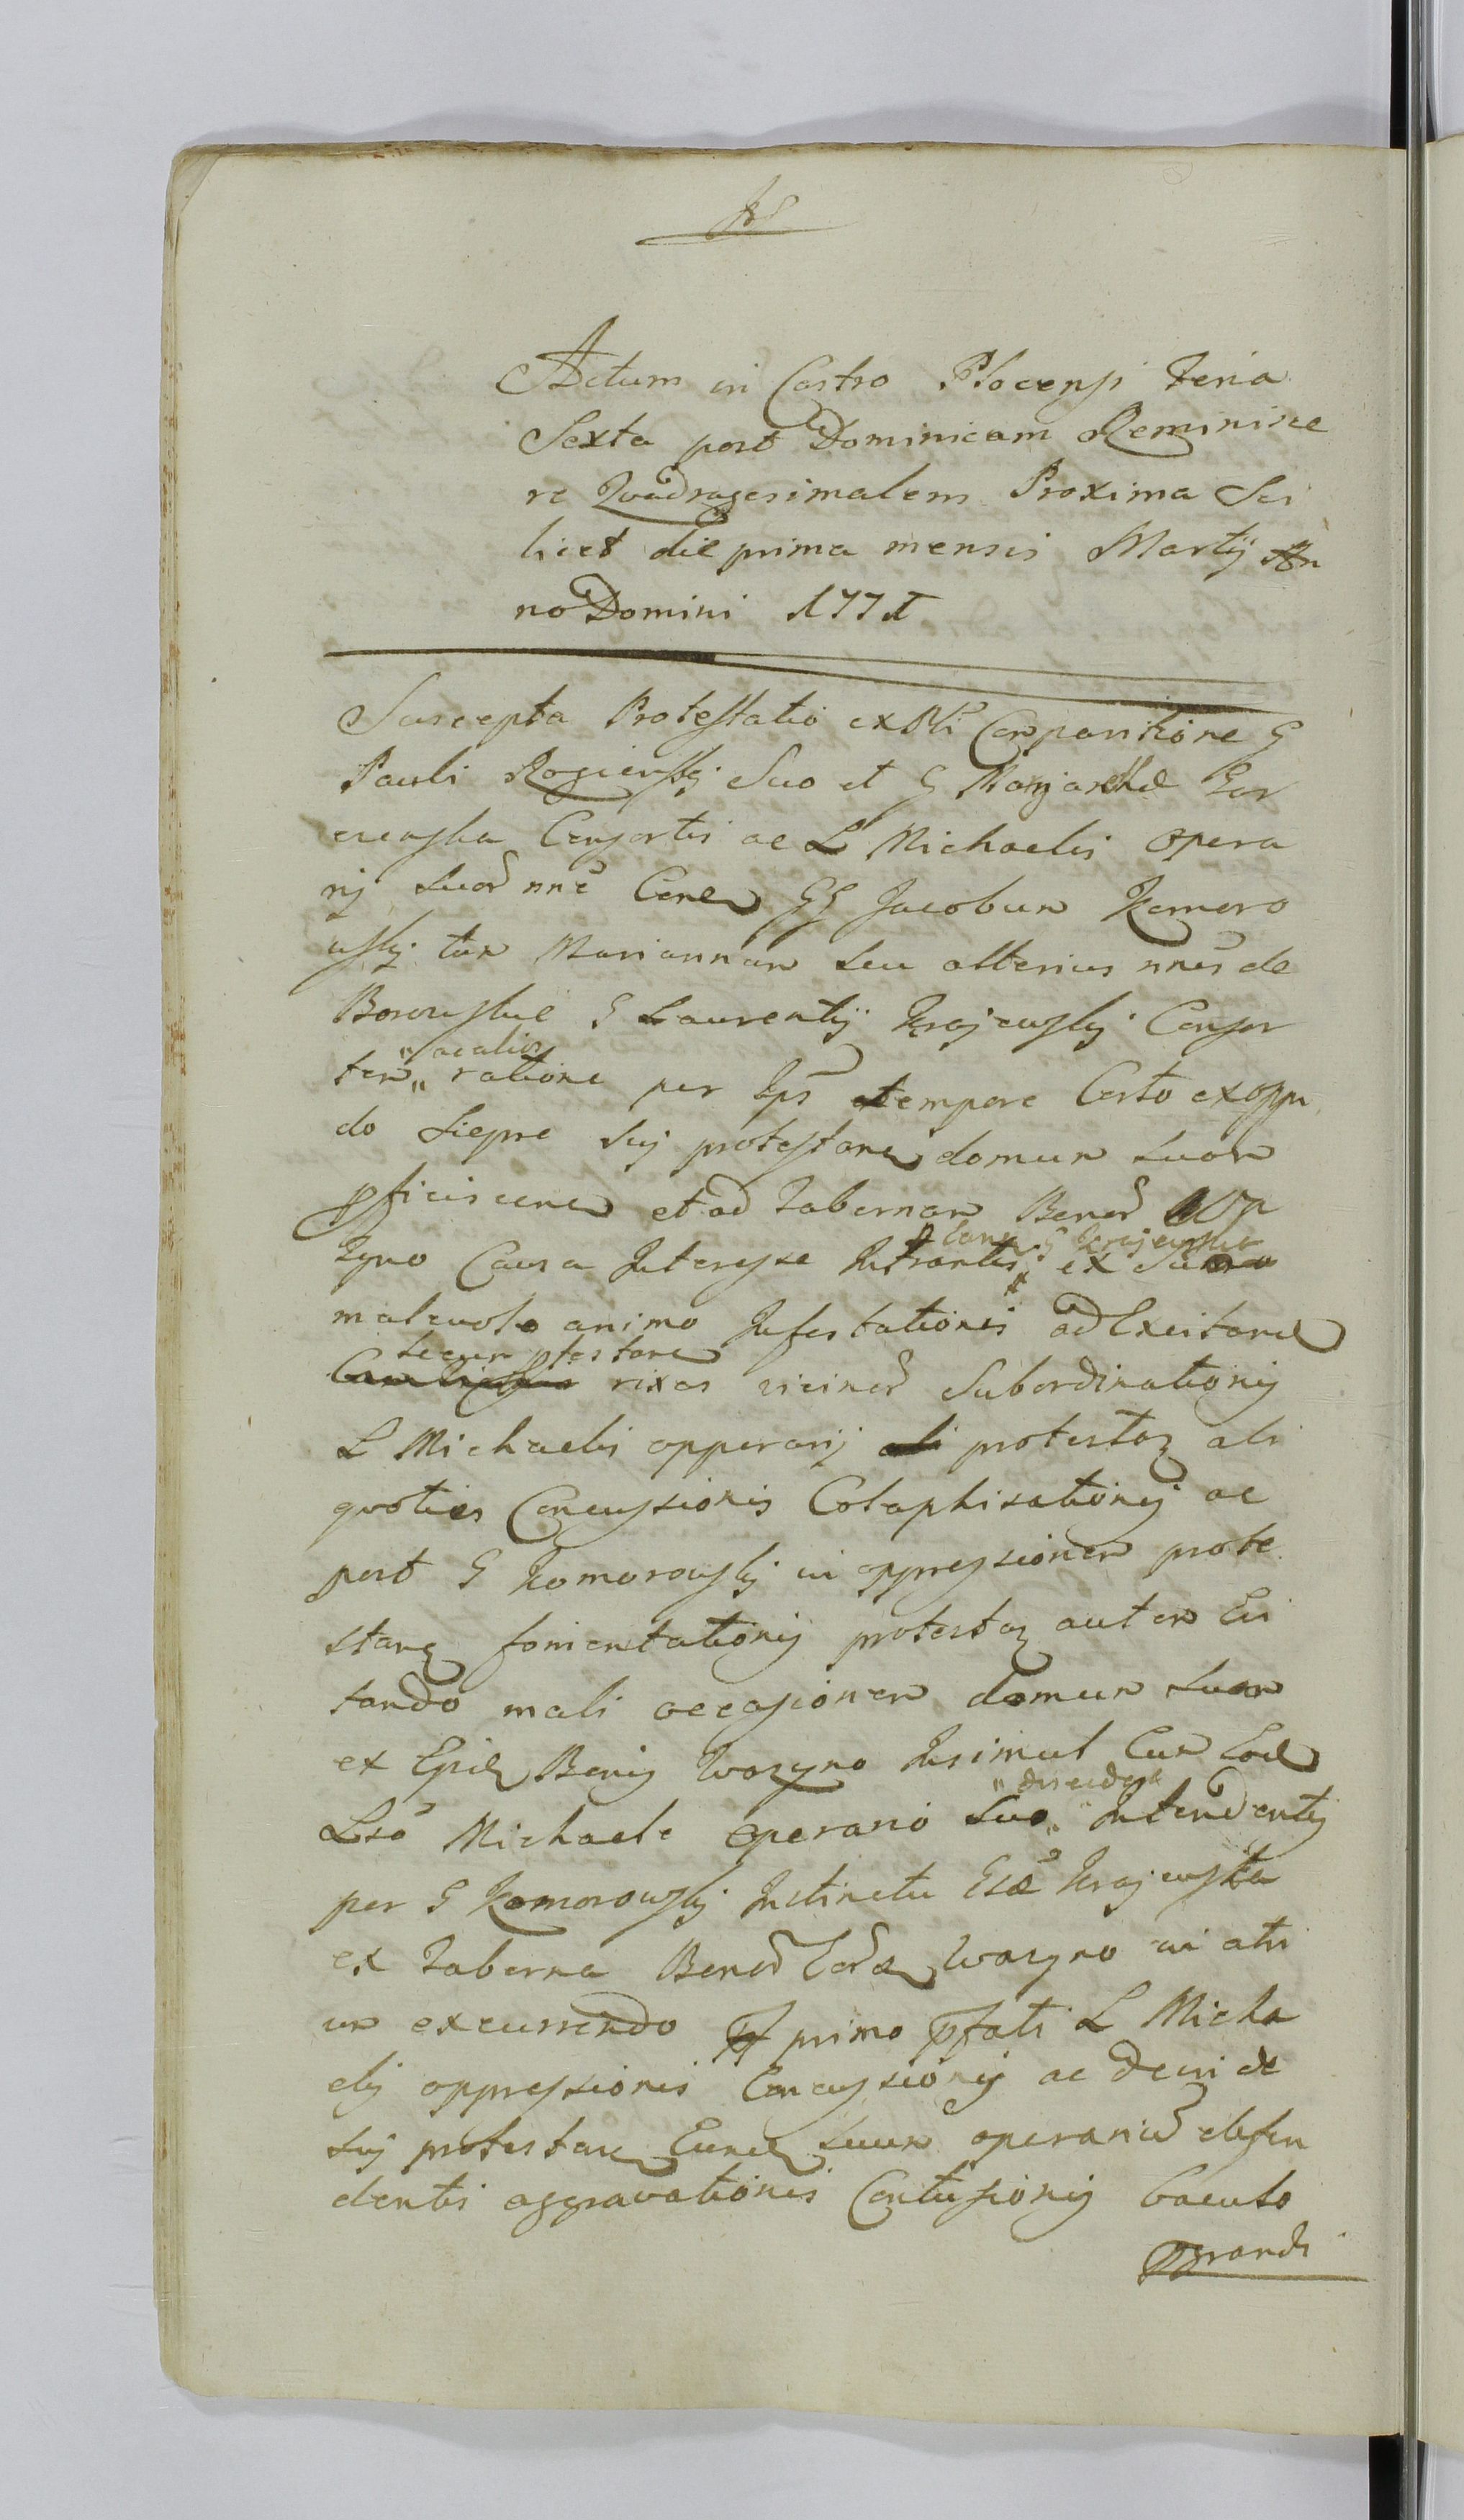 Actum in Castro Plocensi Feria
Sexta post Dominicam Reminisce
re Quadragesimalem Proxima Sci
licet die prima mensis Martij An
no Domini 1771
Suscepta Protestatio ex Comparitione G
Pauli Rogienski Suo et G
Consortis ac L Michaelis opera
rij suor nnē Contra GG Jacobum Komoro
wski tum Mariannam seu alterius nnis de
Borowskie G Laurentij Krajewski Consor
"ac alior
tem" ratione per Ips tempore Certo ex oppi
do Sierpre sui protestane domum suam
pficiscene et ad Tabernam Benor Wo
zyno Causa Interesse Intrantis ex
G Krajewska
malevolo animo Infestationis ad Excitane
secum ptestane
rixas vicinor Subordinationis
L Michaelis opperarij protestaz ali
quoties Concussionis Colaphisationis ac
post G Komorowski in oppressionem prote
stane fomentationis protestaz autem Evi
tando mali occasionem domum suam
ex Bonis Wozyno Insimul Cum Eod
"discedere
Lso Michaele operario suo" Intendentis
per G Komorowski Instinctu Gsæ Krajewska
ex Taberna Benor Wozyno in atri
um excurrendo primo pfati L Micha
elis oppressionis Concussionis ac Deinde
sui protestane Eund suum operariu defen
dentis aggravationis Contusionis baculo
grandi